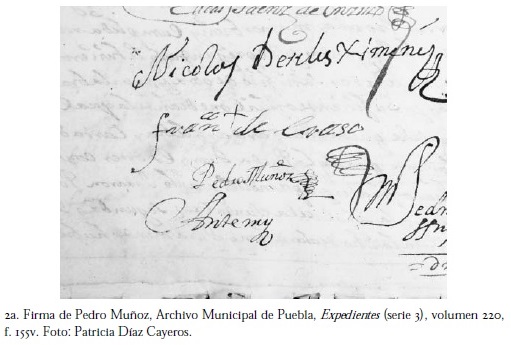 Nicolas Perdes Ximenez
fran.co de
Pedro Muñoz
Antemy
Pedr
2a. Firma de Pedro Muñoz, Archivo Municipal de Puebla, Expedientes (serie 3), volumen 220,
f. 155v. Foto: Patricia Díaz Cayeros.